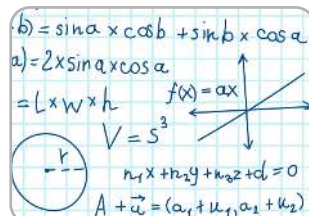 b) = sina x cosb + sinb x cosa
a) = 2 x sina x cosa
= L x w x h
f(x) = ax
V = s³
r
n₁x + n₂y + n₃z + d = 0
A + u⃗ = (a₁ + u₁, a₂ + u₂)